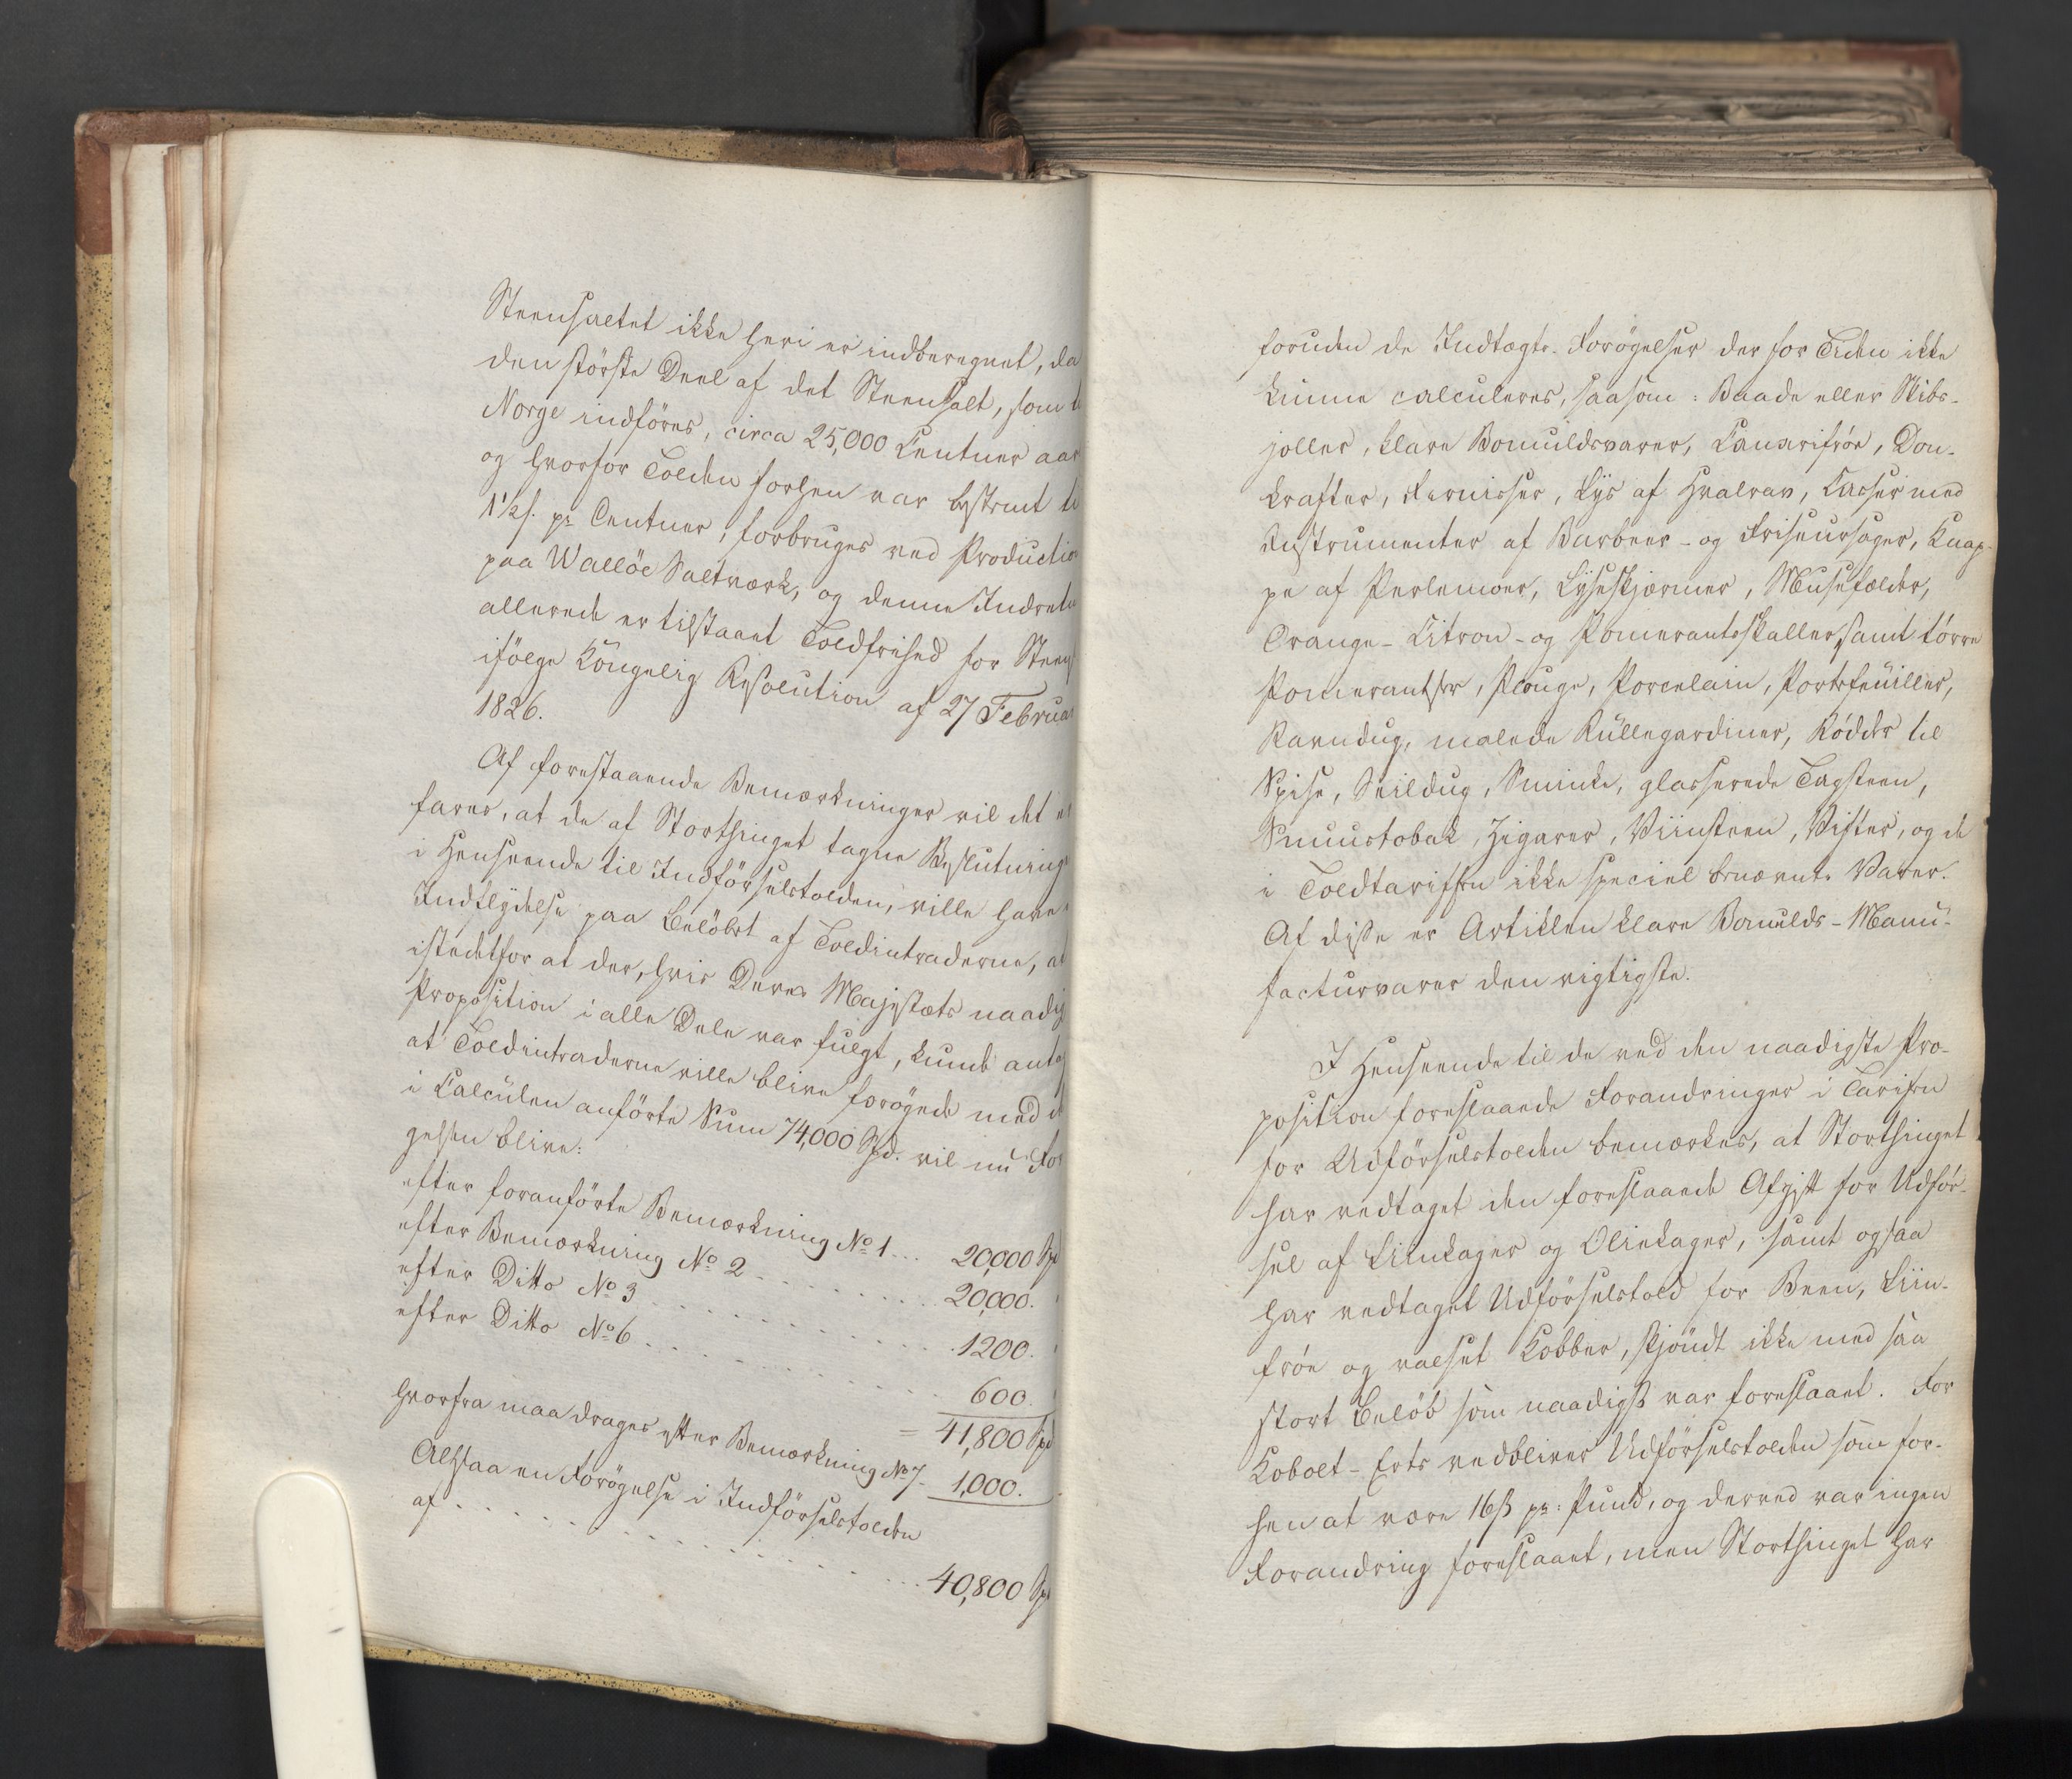 Steensaltet ikke heri er indberegnet, da
den störste Deel af det Steensalt, som
Norge indföres, circa 25,000 Centner aar
og hvorfor Tolden forhen var bestemt
1½ s. pr Centner, forbruges ved Productio
paa Wallöe Saltværk, og denne Indret
allerede er tilstaaet Toldfrihed for Steens
ifölge Kongelig Resolution af 27 Februa
1826.
Af forestaaende Bemærkninger vil det er
fares, at de af Storthinget tagne Beslutning
i Henseende til Indförselstolden, ville have
Indflydelse paa Belöbet af Toldintraderne, at
istedetfor at der, hvis Deres Majestæts naadig
Proposition i alle Dele var fulgt, kunde antag
at Toldintraderne ville blive forögede med d
i Calculen anförte Sum 74,000 Spd. vil nu For
gelsen blive:
efter foranförte Bemærkning No 1 . . . 20,000 Spd
efter Bemærkning No 2 . . . . . . 20,000.
efter Ditto No 3 . . . . . . 1200.
efter Ditto No 6 . . . . . . 600.
= 41,800 Spd
hvorfra maa drages efter Bemærkning No 7. 1,000.
Altsaa en Forögelse i Indförselstolden
af . . . . . . 40,800 Spd
foruden de Indtægts-Forögelser der for Tiden ikke
kunne calculeres, saasom: Baade eller Skibs-
joller, klare Bomuldsvarer, Canarifröe, Don-
krafter, Fernisser, Lys af Hvalrav, Casser med
Instrumenter af Barbeer- og Friseursager, Knap-
pe af Perlemoer, Lyseskjærmer, Musefælder,
Orange- Citron- og Pomerantsskaller, samt törre
Pomerantser, Plouge, Porcelain, Portefeuiller,
Ravndug, malede Rullegardiner, Rödder til
Spise, Seildug, Sminke, glasserede Tagsteen,
Snuustobak, Zigarer, Viinsteen, Vifter, og de
i Toldtariffen ikke speciel benævnte Varer.
Af disse er Artiklen klare Bomulds-Manu-
facturvarer den vigtigste.
I Henseende til de ved den naadigste Pro-
position foreslaaede Forandringer i Tarifen
for Udförselstolden bemærkes, at Storthinget
har vedtaget den foreslaaede Afgift for Udför-
sel af Liinkager og Oliekager, samt ogsaa
har vedtaget Udförselstold for Been, Liin-
fröe og valset Kobber, skjöndt ikke med saa
stort Belöb som naadigst var foreslaaet. For
Kobolt-Erts vedbliver Udförselstolden som for-
hen at være 16 s pr: Pund, og derved var ingen
Forandring foreslaaet, men Storthinget har